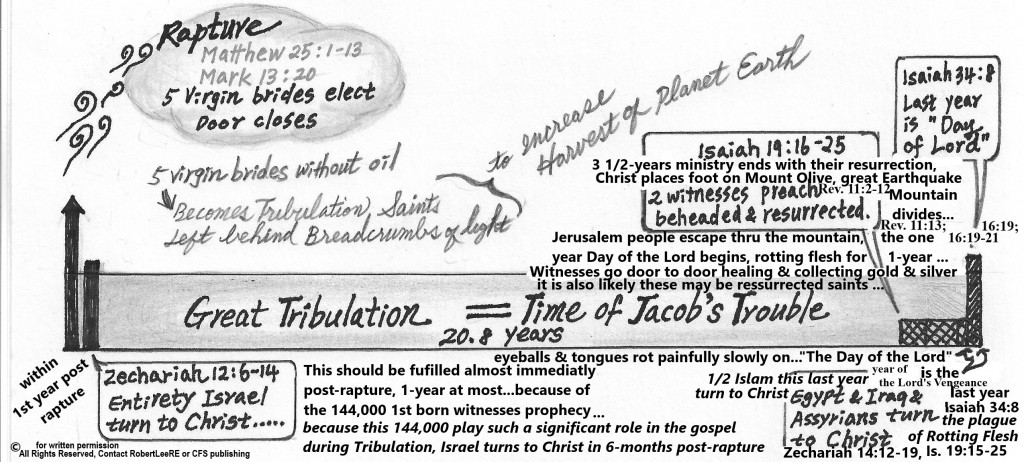 Rapture
Matthew 25:1-13
Mark 13:20
5 Virgin brides elect
Door closes
5 virgin brides without oil
Becomes Tribulation Saints
Left behind Breadcrumbs of light
to increase
Harvest of Planet Earth
Isaiah 34:8
Last year
is "Day
of Lord"
Isaiah 19:16-25
3 1/2-years ministry ends with their resurrection,
Christ places foot on Mount Olive, great Earthquake
2 witnesses preach Rev. 11:2-12 Mountain
beheaded & resurrected. divides...
Rev. 11:13; 16:19;
Jerusalem people escape thru the mountain, the one 16:19-21
year Day of the Lord begins, rotting flesh for 1-year ...
Witnesses go door to door healing & collecting gold & silver
it is also likely these may be ressurrected saints ...
Great Tribulation = Time of Jacob's Trouble
20.8 years
within
1st year post
rapture
Zechariah 12:6-14
Entirety Israel
turn to Christ.....
This should be fufilled almost immediatly
post-rapture, 1-year at most...because of
the 144,000 1st born witnesses prophecy ...
because this 144,000 play such a significant role in the gospel
during Tribulation, Israel turns to Christ in 6-months post-rapture
eyeballs & tongues rot painfully slowly on..."The Day of the Lord" is the
year of
the Lord's Vengeance
1/2 Islam this last year
turn to Christ
Egypt & Iraq &
Assyrians turn
to Christ
last year
Isaiah 34:8
the plague
of Rotting Flesh
Zechariah 14:12-19, Is. 19:15-25
© for written permission
All Rights Reserved, Contact RobertLeeRE or CFS publishing